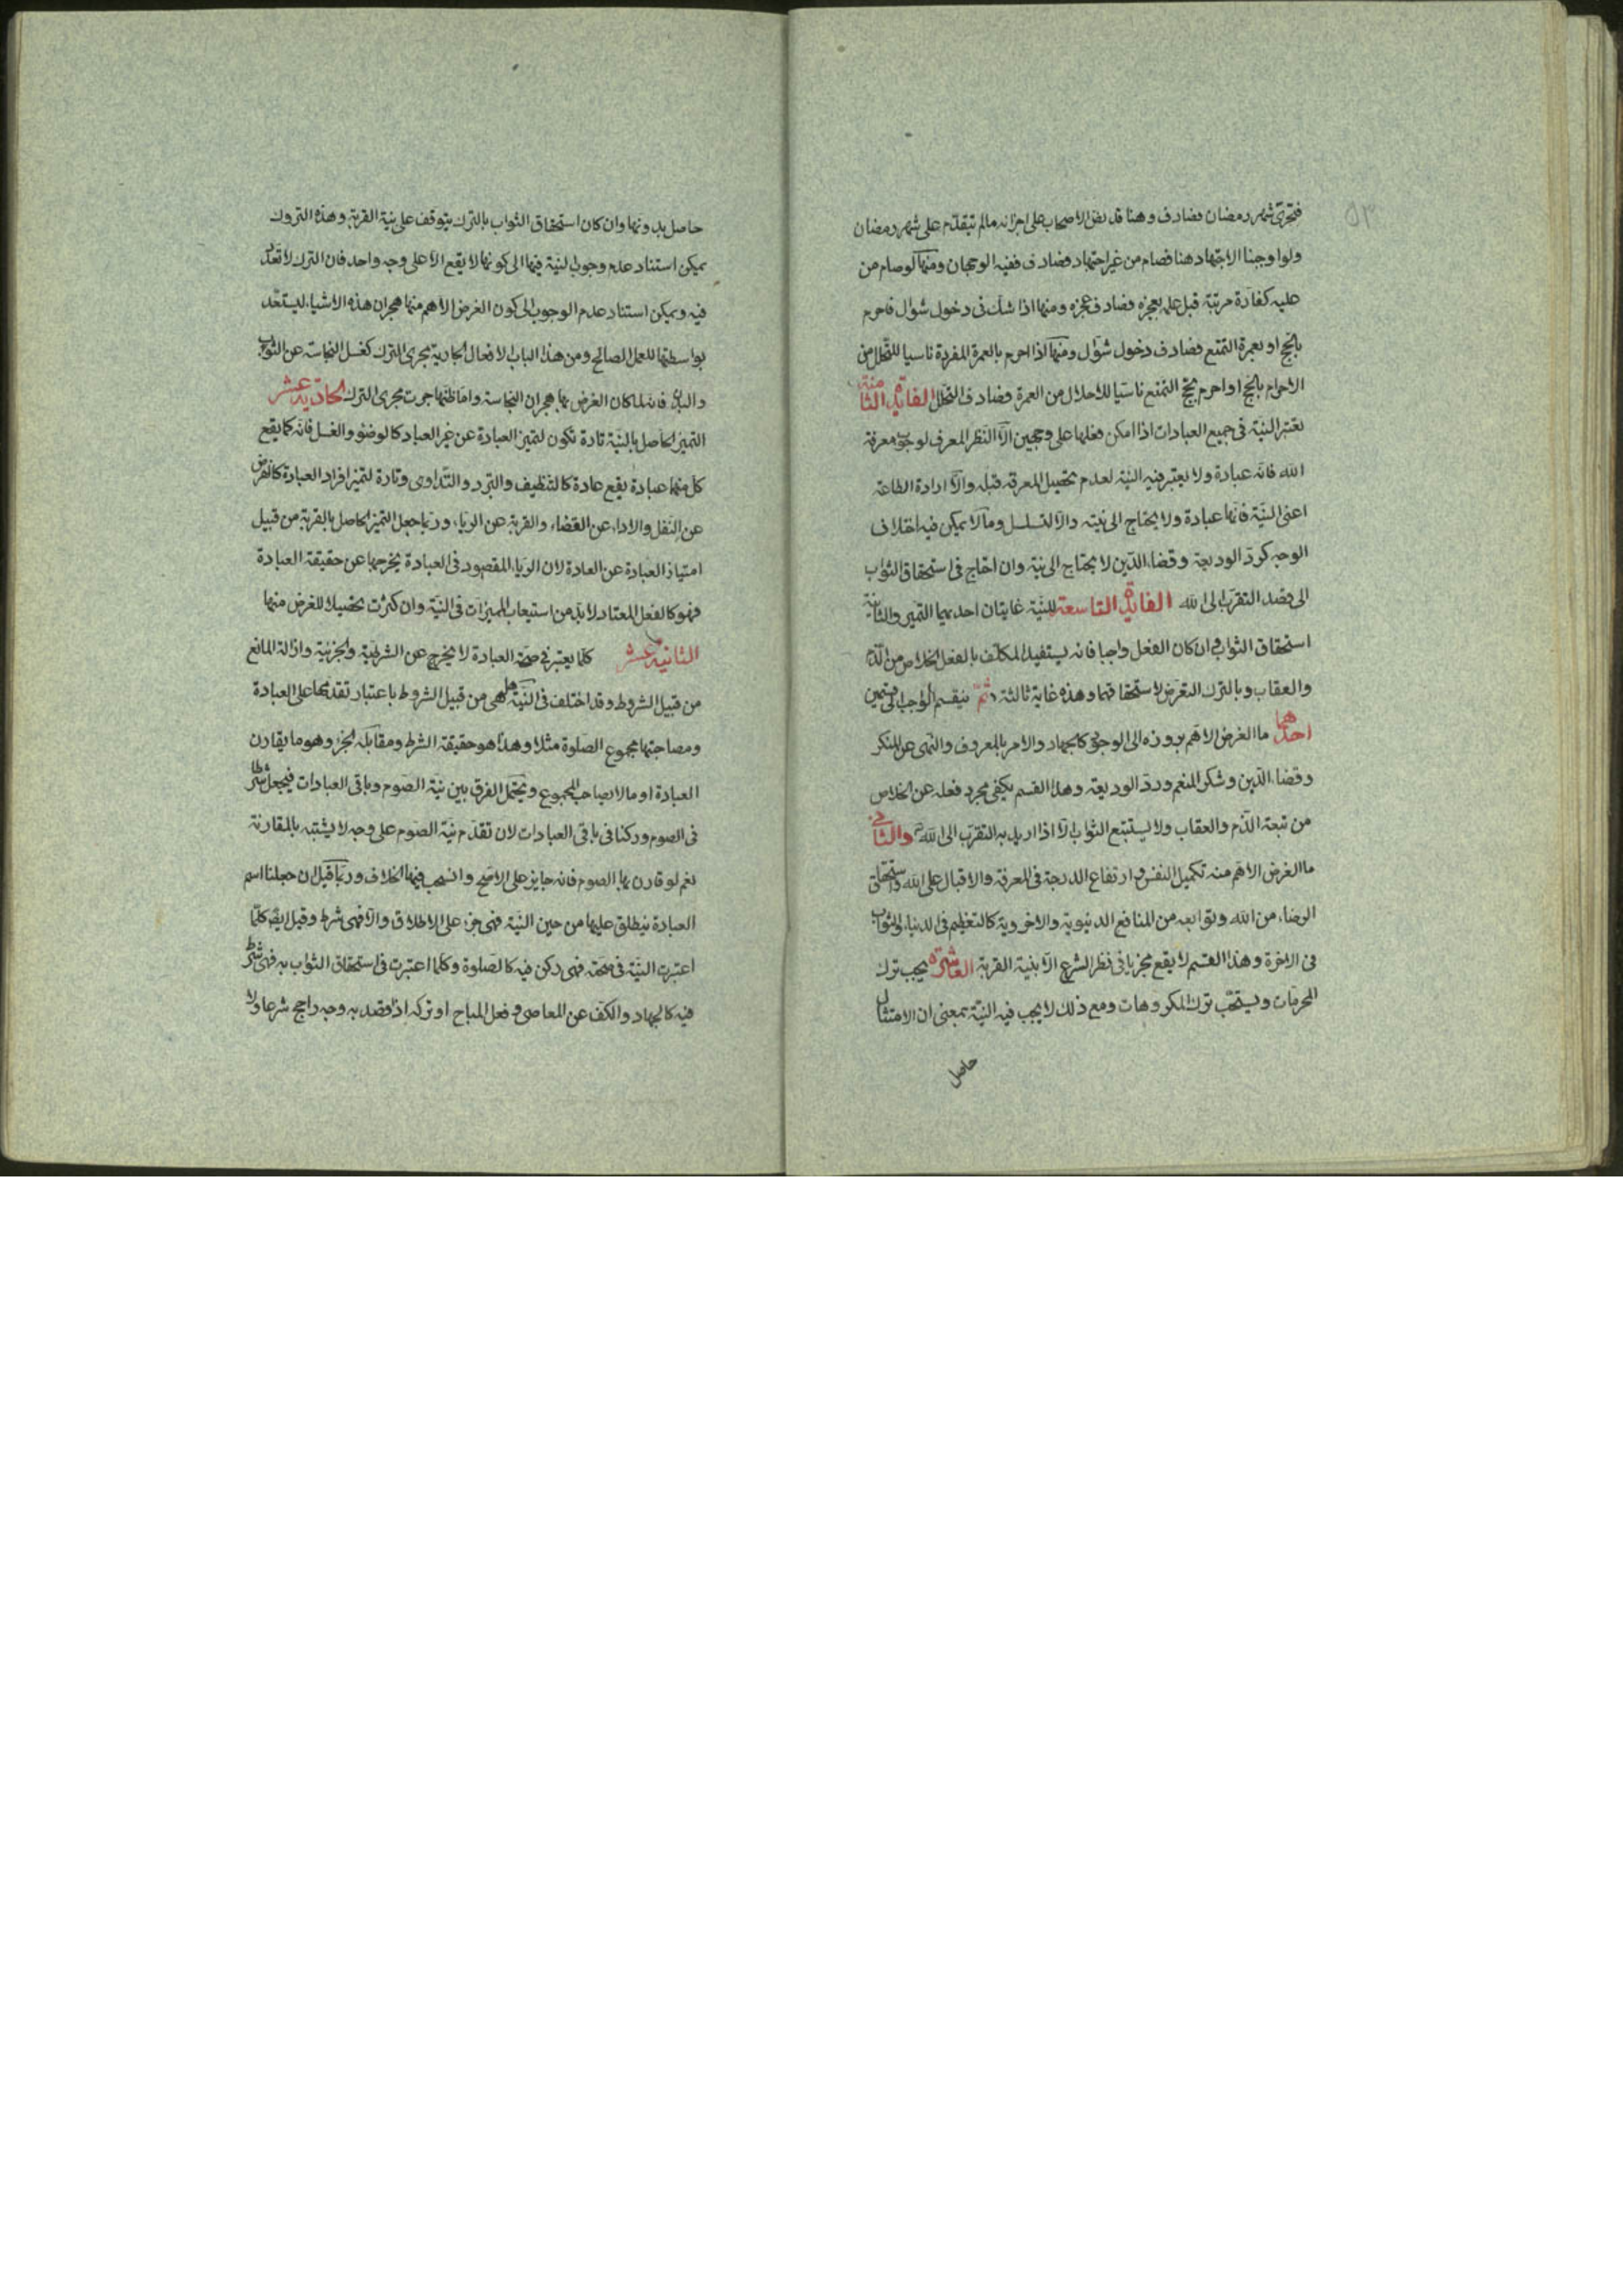 ٥٣
فتحرى شهر رمضان فصادف وهنا قد نص الاصحاب على اجزائه مالم يتقدم على شهر رمضان
ولو اوجبنا الاجتهاد هنا فصام من غير اجتهاد فصادف ففيه الوجهان ومنها لو صام من
عليه كفارة مرتبة قبل علمه بعجزه فصادف عجزه ومنها اذا شك فى دخول شوال فاحرم
بالحج او بعمرة التمتع فصادف دخول شوال ومنها اذا احرم بالعمرة المفردة ناسيا للتحلل من
الاحرام بالحج او احرم بحج التمتع ناسيا للاحلال من العمرة فصادف التحلل الفايدة الثامنة
تعتبر النية فى جميع العبادات اذا امكن فعلها على وجهين الا النظر المعرف لوجوب معرفة
الله فانه عبادة ولا يعتبر فيه النية لعدم تحصيل المعرفة قبله والا ارادة الطاعة
اعنى النية فانها عبادة ولا يحتاج الى نية والا لتسلسل وما لا يمكن فيه اختلاف
الوجه كرد الوديعة وقضاء الدين لا يحتاج الى نية وان احتاج فى استحقاق الثواب
الى قصد التقرب الى الله الفايدة التاسعة للنية غايتان احديهما التميز والثانية
استحقاق الثواب وان كان الفعل واجبا فانه يستفيد المكلف بالفعل الخلاص من الذم
والعقاب وبالترك التعرض لاستحقاقهما وهذه غاية ثالثة ثم ينقسم الواجب الى قسمين
احدهما ما الغرض الاهم بروزه الى الوجود كالجهاد والامر بالمعروف والنهى عن المنكر
وقضاء الدين وشكر المنعم ورد الوديعة وهذا القسم يكفى مجرد فعله عن الخلاص
من تبعة الذم والعقاب ولا يستتبع الثواب الا اذا اريد به التقرب الى الله والثانى
ما الغرض الاهم منه تكميل النفس وارتفاع الدرجة فى المعرفة والاقبال على الله واستحقاق
الرضاء من الله وتوابعه من المنافع الدنيوية والاخروية كالتعظيم فى الدنيا والثواب
فى الاخرة وهذا القسم لا يقع مجزيا فى نظر الشرع الا بنية القربة العاشرة يجب ترك
المحرمات ويستحب ترك المكروهات ومع ذلك لا يجب فيه النية بمعنى ان الامتثال
حاصل
حاصل بدونها وان كان استحقاق الثواب بالترك يتوقف على نية القربة وهذه التروك
يمكن استناد عدم وجوب النية فيها الى كونها لا يقع الا على وجه واحد فان الترك لا تعدد
فيه ويمكن استناد عدم الوجوب الى كون الغرض الاهم منها هجران هذه الاشياء ليستعد
بواسطتها للعمل الصالح ومن هذا الباب الافعال الجارية مجرى الترك كغسل النجاسة عن الثوب
والبدن فانه لما كان الغرض بها هجران النجاسة واماطتها جرت مجرى الترك الحادية عشر
التميز الحاصل بالنية تارة تكون لتميز العبادة عن غير العبادة كالوضوء والغسل فانه كما يقع
كل منهما عبادة يقع عادة كالتنظيف والتبرد والتداوى وتارة لتميز افراد العبادة كالفرض
عن النفل والاداء عن القضاء والقربة عن الرياء وربما جعل التميز الحاصل بالقربة من قبيل
امتياز العبادة عن العادة لان الرياء المقصود فى العبادة يخرجها عن حقيقة العبادة
فهو كالفعل المعتاد لا بد من استيعاب المميزات فى النية وان كثرت تحصيلا للغرض منها
الثانية عشر كلما يعتبر فى صحة العبادة لا يخرج عن الشرطية والجزئية وازالة المانع
من قبيل الشروط وقد اختلف فى النية هل هى من قبيل الشروط باعتبار تقدمها على العبادة
ومصاحبتها مجموع الصلوة مثلا وهذا هو حقيقة الشرط ومقابله الجزء وهو ما يقارن
العبادة او مالا يصاحب المجموع ويحتمل الفرق بين نية الصوم وباقى العبادات فيجعل شرطا
فى الصوم وركنا فى باقى العبادات لان تقدم نية الصوم على وجه لا يشتبه بالمقارنة
نعم لو قارن بها الصوم فانه جايز على الاصح وانسحب فيها الخلاف وربما قيل ان جعلنا اسم
العبادة ينطلق عليها من حين النية فهى جزء على الاطلاق والا فهى شرط وقيل ايضا كلما
اعتبرت النية فى صحته فهى ركن فيه كالصلوة وكلما اعتبرت فى استحقاق الثواب به فهى شرط
فيه كالجهاد والكف عن المعاصى وفعل المباح او تركه اذا قصد به وجه راجح شرعا ولا